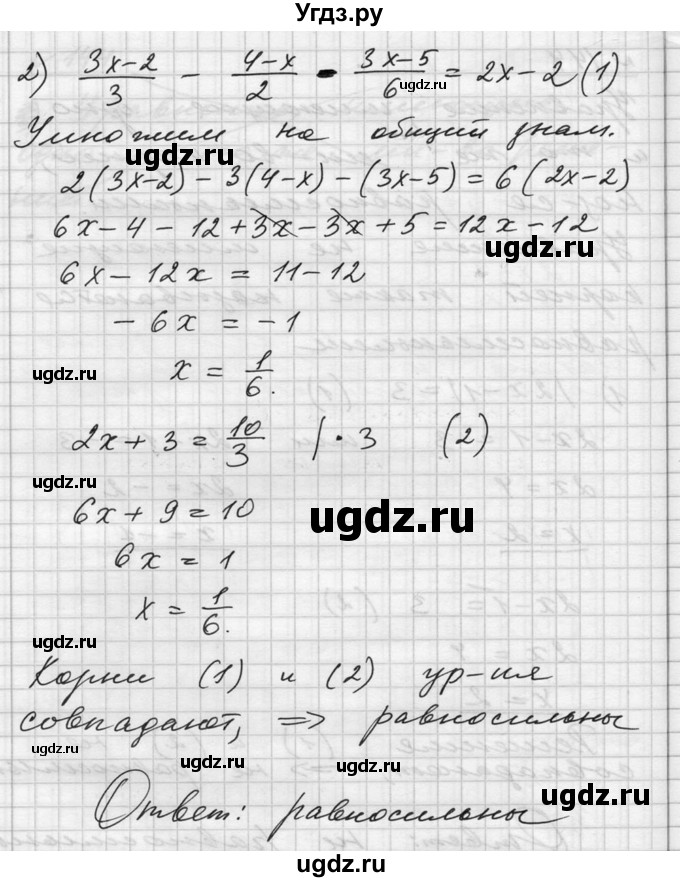 Угдз.ру
2) (3x-2)/3 - (4-x)/2 - (3x-5)/6 = 2x-2 (1)
ugdz.ru
Умножим на общий знам.
ugdz.ru
2(3x-2) - 3(4-x) - (3x-5) = 6(2x-2)
6x - 4 - 12 + 3x - 3x + 5 = 12x - 12
ugdz.ru
6x - 12x = 11 - 12
- 6x = -1
ugdz.ru
x = 1/6.
2x + 3 = 10/3 | · 3 (2)
ugdz.ru
6x + 9 = 10
ugdz.ru
6x = 1
x = 1/6.
ugdz.ru
Корни (1) и (2) ур-ия
совпадают, => равносильны
ugdz.ru ugdz.ru
Ответ: равносильны
ugdz.ru